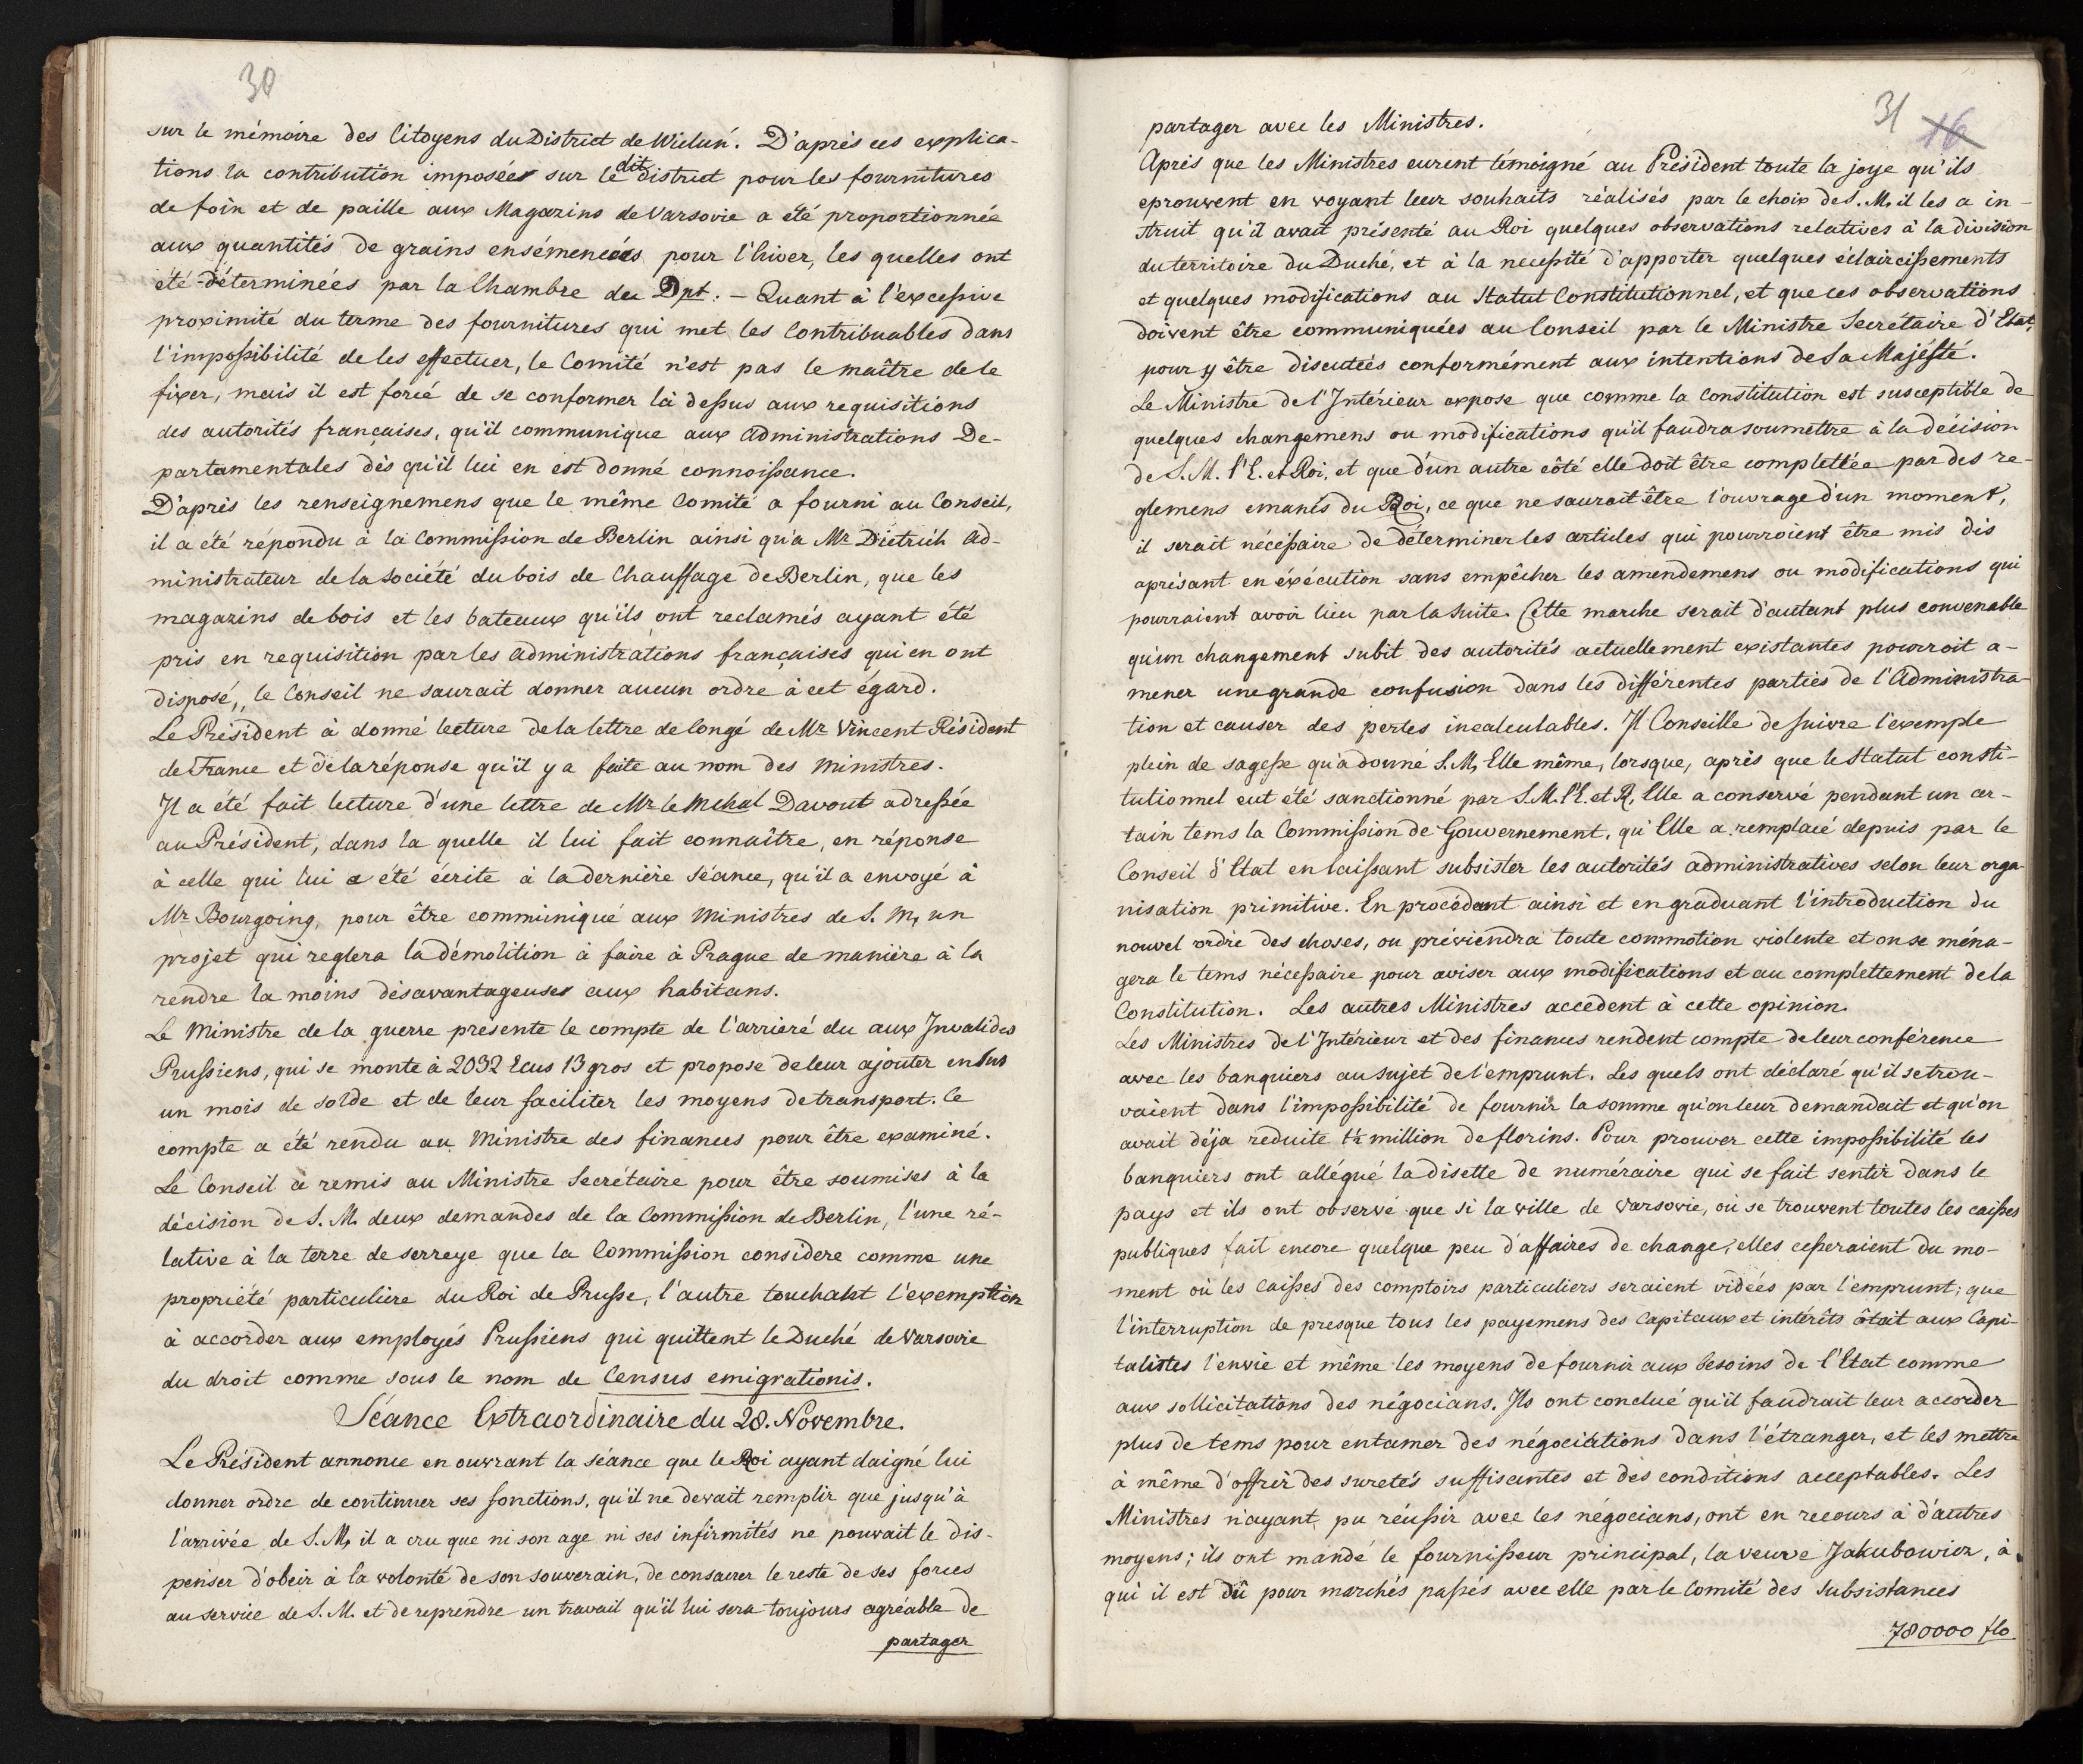 30
sur le mémoire des Citoyens du District de Wielun. D'après ces explica-
tions la contribution imposée sur le dit district pour les fournitures
de foin et de paille aux Magazins de Varsovie a été proportionnée
aux quantités de grains ensémencés pour l'hiver, les quelles ont
été déterminées par la Chambre du Dpt. – Quant à l'excessive
proximité du terme des fournitures qui met les Contribuables dans
l'impossibilité de les effectuer, le Comité n'est pas le maître de le
fixer, mais il est forcé de se conformer là dessus aux requisitions
des autorités françaises, qu'il communique aux Administrations De-
partamentales dès qu'il lui en est donné connoissance.
D'après les renseignemens que le même Comité a fourni au Conseil,
il a été répondu à la Commission de Berlin ainsi qu'a Mr Dietrich Ad-
ministrateur de la societé du bois de Chauffage de Berlin, que les
magazins de bois et les bateaux qu'ils ont reclamés ayant été
pris en requisition par les administrations françaises qui en ont
disposé, le Conseil ne saurait donner aucun ordre à cet égard.
Le Président à donné lecture de la lettre de Congé de Mr Vincent Résident
de France et de la réponse qu'il y a faite au nom des Ministres.
Il a été fait lecture d'une lettre de Mr le Mchal Davout adressée
au Président, dans la quelle il lui fait connaître, en réponse
à celle qui lui a été écrite à la dernière Séance, qu'il a envoyé à
Mr Bourgoing, pour être communiqué aux Ministres de S. M, un
projet qui reglera la démolition à faire à Prague de manière à la
rendre la moins désavantageuse aux habitans.
Le Ministre de la guerre presente le compte de l'arrieré du aux Invalides
Prussiens, qui se monte à 2032 Ecus 13 gros et propose de leur ajouter en sus
un mois de solde et de leur faciliter les moyens de transport. Ce
compte a été rendu au Ministre des finances pour être examiné.
Le Conseil a remis au Ministre Secrétaire pour être soumises à la
décision de S. M. deux demandes de la Commission de Berlin, l'une ré-
lative à la terre de serreye que la Commission considere comme une
propriété particuliere du Roi de Prusse, l'autre touchant l'exemption
à accorder aux employés Prussiens qui quittent le Duché de Varsovie
du droit comme sous le nom de Census emigrationis.
Séance Extraordinaire du 28. Novembre.
Le Président annonce en ouvrant la séance que le Roi ayant daigné lui
donner ordre de continuer ses fonctions, qu'il ne devait remplir que jusqu'à
l'arrivée de S. M, il a cru que ni son age ni ses infirmités ne pouvait le dis-
penser d'obeir à la volonté de son souverain, de consacrer le reste de ses forces
au service de S. M. et de reprendre un travail qu'il lui sera toujours agréable de
partager
31 16
partager avec les Ministres.
Après que les Ministres eurent témoigné au Président toute la joye qu'ils
eprouvent en voyant leur souhaits réalisés par le choix de S. M, il les a in-
struit qu'il avait présenté au Roi quelques observations relatives à la division
du territoire du Duché, et à la necessité d'apporter quelques éclaircissements
et quelques modifications au Statut Constitutionnel, et que ces observations
doivent être communiquées au Conseil par le Ministre Secrétaire d'Etat,
pour y être discutées conformément aux intentions de Sa Majesté.
Le Ministre de l'Intérieur expose que comme la Constitution est susceptible de
quelques changemens ou modifications qu'il faudra soumettre à la décision
de S. M. l'E. et Roi, et que d'un autre côté elle doit être complettée par des re-
glemens emanés du Roi, ce que ne saurait être l'ouvrage d'un moment,
il serait nécéssaire de déterminer les articles qui pourroient être mis dis
aprésant en éxécution sans empêcher les amendemens ou modifications qui
pourraient avoir lieu par la suite. Cette marche serait d'autant plus convenable
qu'un changement subit des autorités actuellement existantes pourroit a-
mener une grande confusion dans les différentes parties de l'Administra-
tion et causer des pertes incalculables. Il Conseille de suivre l'exemple
plein de sagesse qu'a donné S. M, Elle même, lorsque, après que le Statut consti-
tutionnel eut été sanctionné par S. M. l'E. et R, Elle a conservé pendant un cer-
tain tems la Commission de Gouvernement, qu'Elle a remplacé depuis par le
Conseil d'Etat en laissant subsister les autorités administratives selon leur orga-
nisation primitive. En procédant ainsi et en graduant l'introduction du
nouvel ordre des choses, on préviendra toute commotion violente et on se ména-
gera le tems nécessaire pour aviser aux modifications et au complettement de la
Constitution. Les autres Ministres accedent à cette opinion.
Les Ministres de l'Intérieur et des finances rendent compte de leur conférence
avec les banquiers au sujet de l'emprunt. Les quels ont déclaré qu'il se trou-
vaient dans l'impossibilité de fournir la somme qu'on leur demandait et qu'on
avait déja reduite 1½ million de florins. Pour prouver cette impossibilité les
banquiers ont allégué la disette de numéraire qui se fait sentir dans le
pays et ils ont observé que si la ville de Varsovie, où se trouvent toutes les caisses
publiques fait encore quelque peu d'affaires de change, elles cesseraient du mo-
ment où les Caisses des comptoirs particuliers seraient vidées par l'emprunt; que
l'interruption de presque tous les payemens des Capitaux et intérêts ôtait aux Capi-
talistes l'envie et même les moyens de fournir aux besoins de l'Etat comme
aux sollicitations des négocians. Ils ont conclué qu'il faudrait leur accorder
plus de tems pour entamer des négociations dans l'étranger, et les mettre
à même d'offrir des suretés suffisantes et des conditions acceptables. Les
Ministres n'ayant pu réussir avec les négocians, ont en recours à d'autres
moyens; ils ont mandé le fournisseur principal, la veuve Jakubowicz, à
qui il est dû pour marchés passés avec elle par le Comité des Subsistances
780000 flo